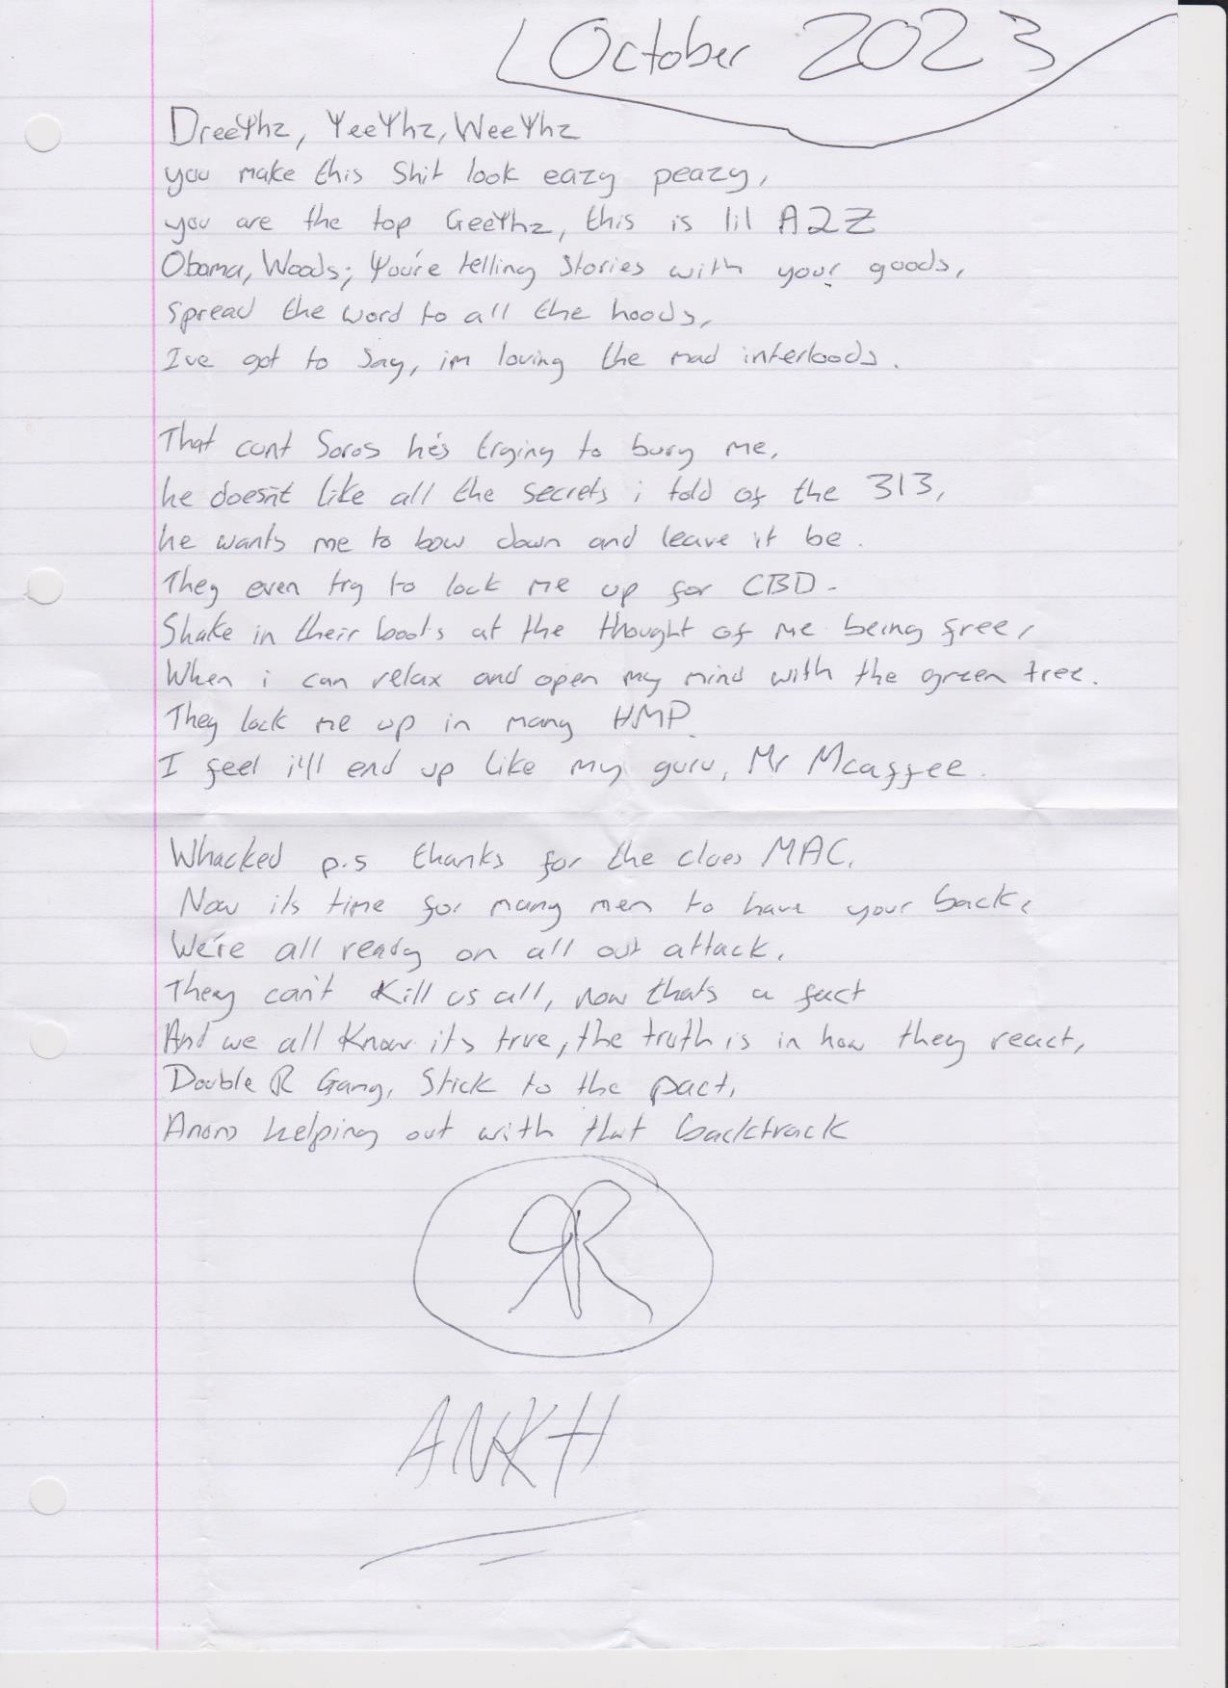 October 2023
DreeΨhz, YeeΨhz, WeeΨhz
you make this Shit look eazy peazy,
you are the top GeeΨhz, this is lil A2Z
Obama, Woods; You're telling Stories with your goods,
Spread the word to all the hoods,
I've got to Say, im loving the mad interloods.
That cunt Soros he's trying to bury me,
he doesn't like all the secrets i told of the 313,
he wants me to bow down and leave it be.
They even try to lock me up for CBD.
Shake in their boots at the thought of me being free,
When i can relax and open my mind with the green tree.
They lock me up in many HMP.
I feel i'll end up like my guru, Mr Mcaffee.
Whacked p.s thanks for the clues MAC,
Now its time for many men to have your back,
We're all ready on all out attack.
They can't Kill us all, now thats a fact
And we all Know its true, the truth is in how they react,
Double R Gang, Stick to the pact,
Anons helping out with that backtrack
RR
ANKH